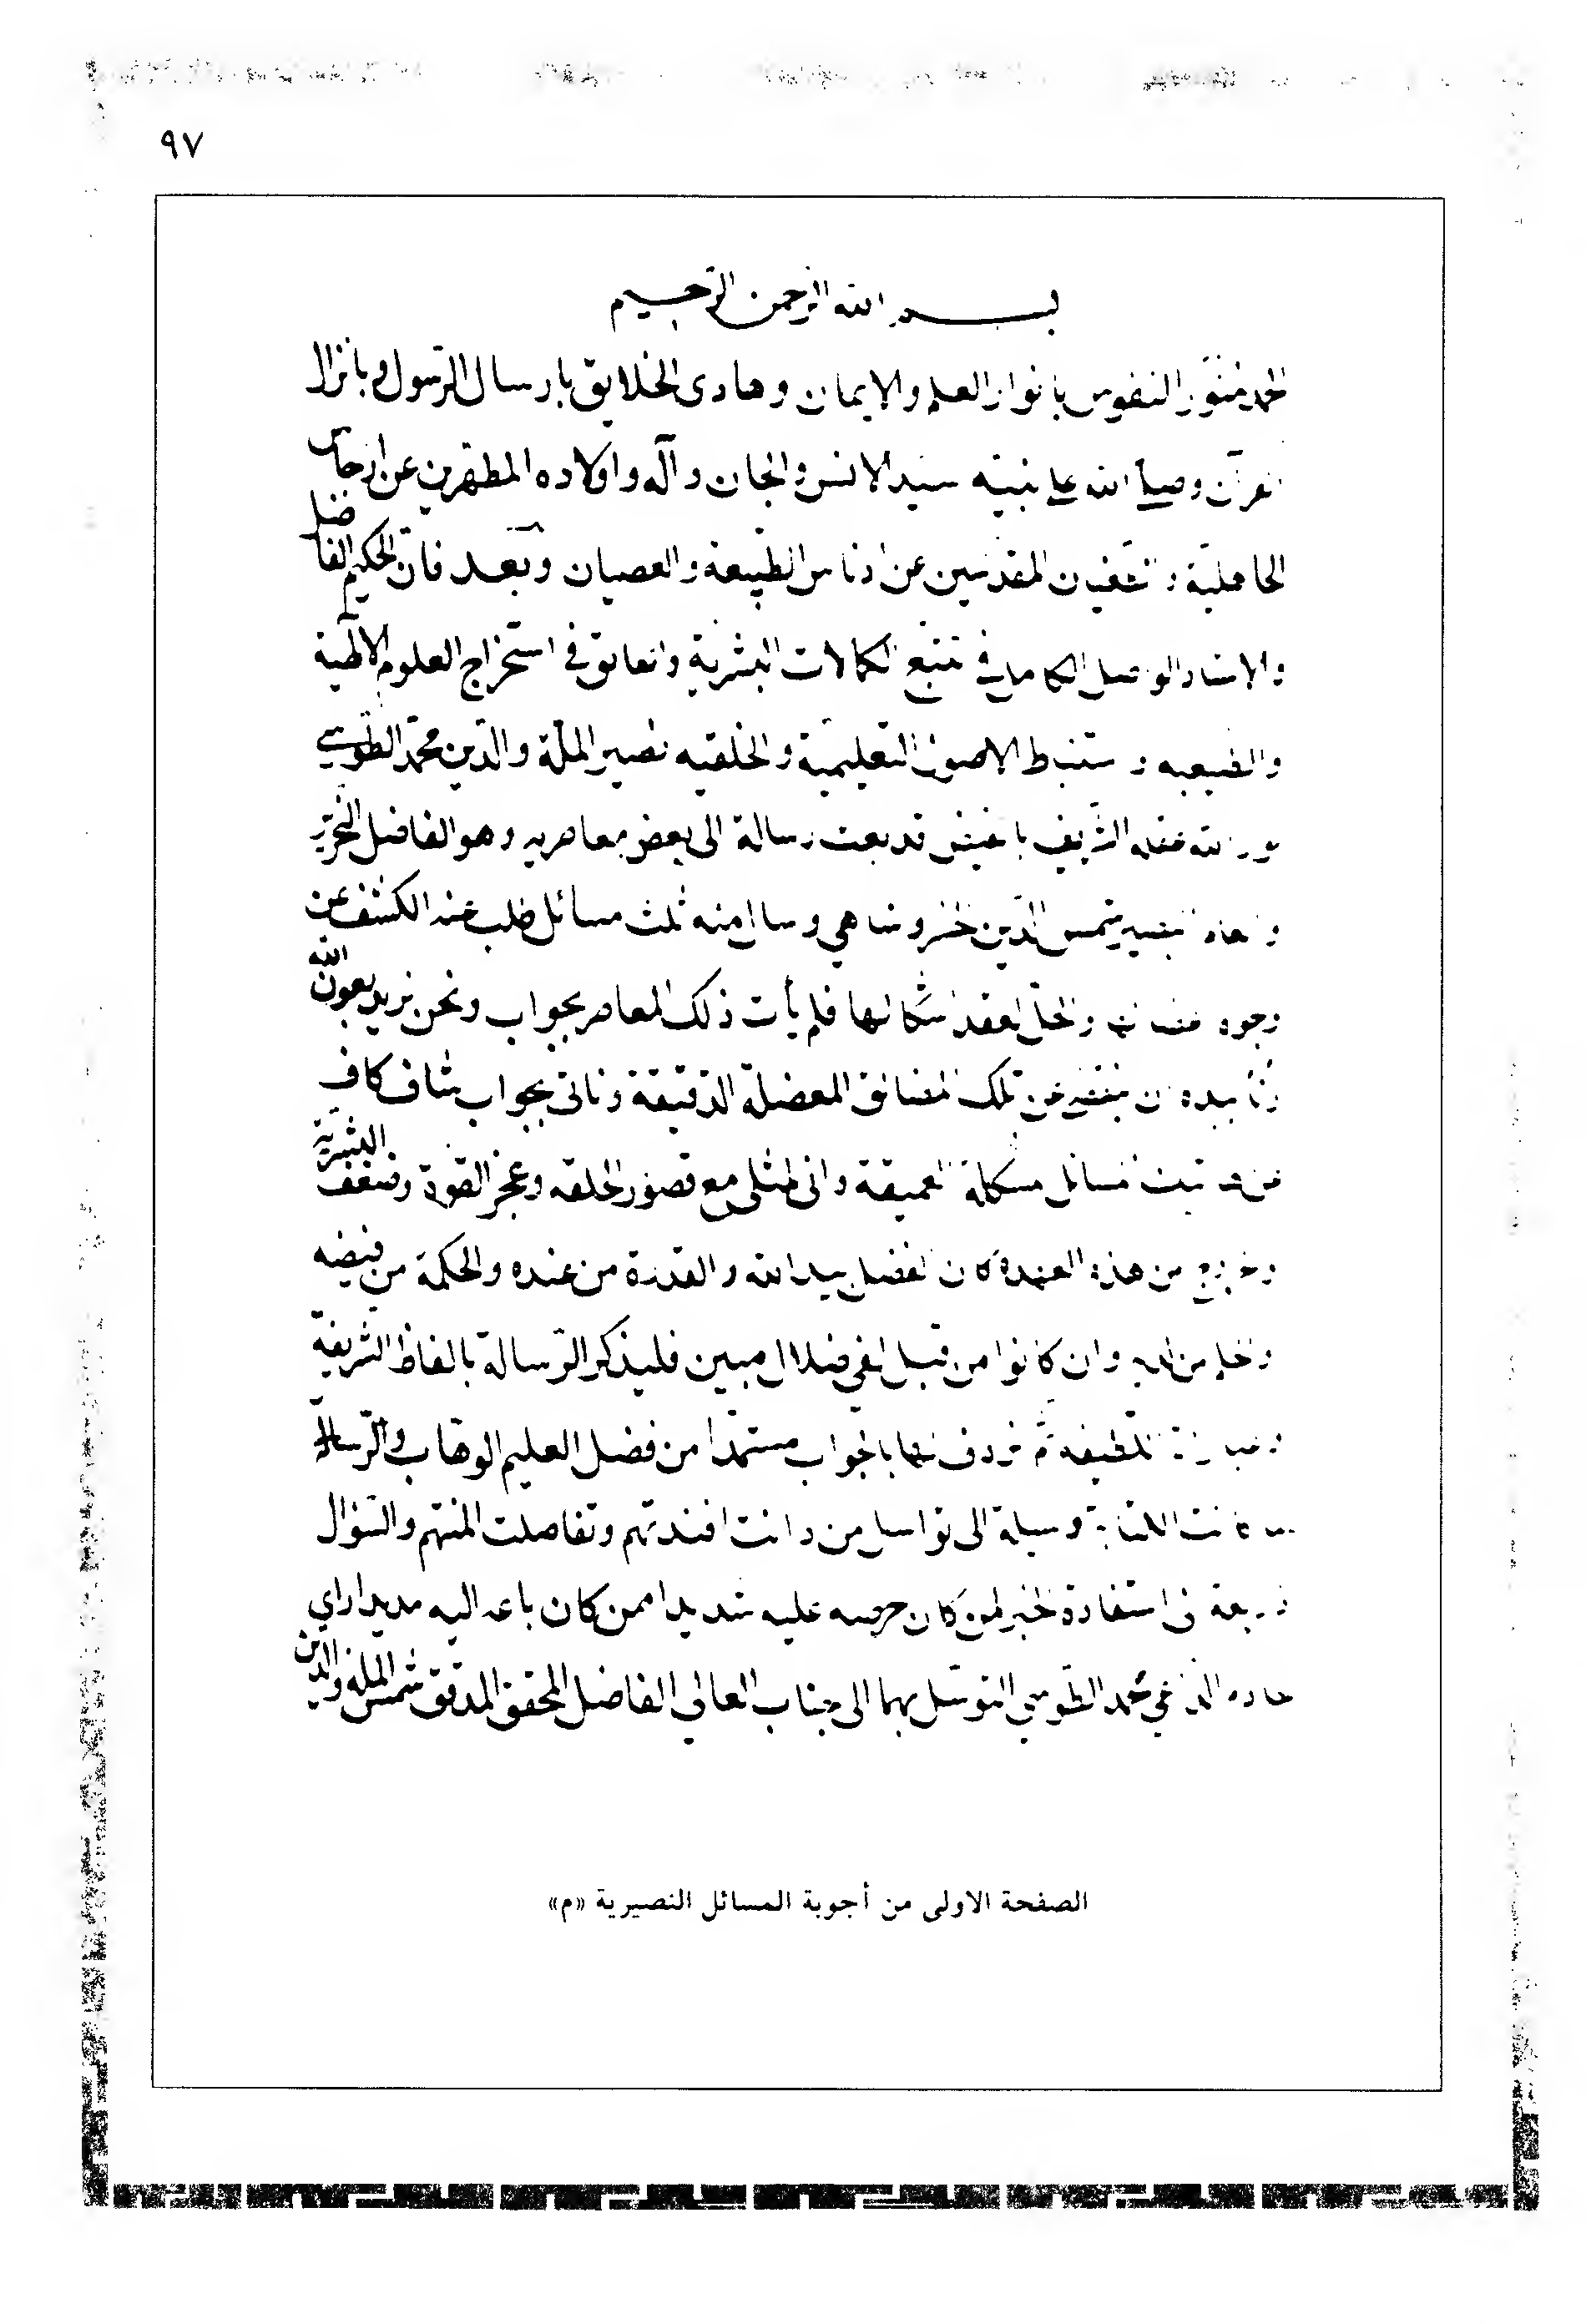 ٩٧
بسم الله الرحمن الرحيم
الحمد منور النفوس بانوار العلم والايمان وهادى الخلايق بارسال الرسول وبانزال
وصلى الله على نبيه سيد الانس والجان وآله واولاده المطهرين عن ارجاس
الجاهلية المقدسين عن ادناس الطبيعة والعصيان وبعد فان الحكيم الفاضل
والاستاد الكامل فى تتبع الكمالات البشرية فى استخراج العلوم الالهية
والطبيعيه و ستنباط الاصول التعليمية والخلقيه نصير الملة والدين محمد الطوسي
الله عقله الشريف قد بعث رسالة الى بعض معاصريه وهو الفاضل النحرير
شمس الدين خسروشاهي وسال منه ثلث مسائل طلب عنه الكشف عن
وجوه والحل لعقد اشكالها فلم يأت ذلك المعاصر بجواب ونحن نريد بعون الله
عن تلك المضائق المعضلة الدقيقة وناتى بجواب شاف كاف
العميقة وانى لمثلى مع قصور الخلقه وعجز القوة وضعف البشرية
من هذه العهدة لكن الفضل بيد الله والقدرة من عنده والحكمة من فيضه
وان كانوا من قبل لفي ضلال مبين فليذكر الرسالة بالفاظ الشريفة
اللطيفه ثم بالجواب مستمدا من فضل العليم الوهاب والرسالة
وسيلة الى تواصل من دانت افئدتهم وتفاصلت والسؤال
فى استفادة الخير لمن كان حرصه عليه شديدا ممن كان باعه اليه مديدا راي
محمد الطوسي التوسل بهما الى جناب العالي الفاضل المحقق المدقق شمس الملة والدين
الصفحة الاولى من أجوبة المسائل النصيرية «م»